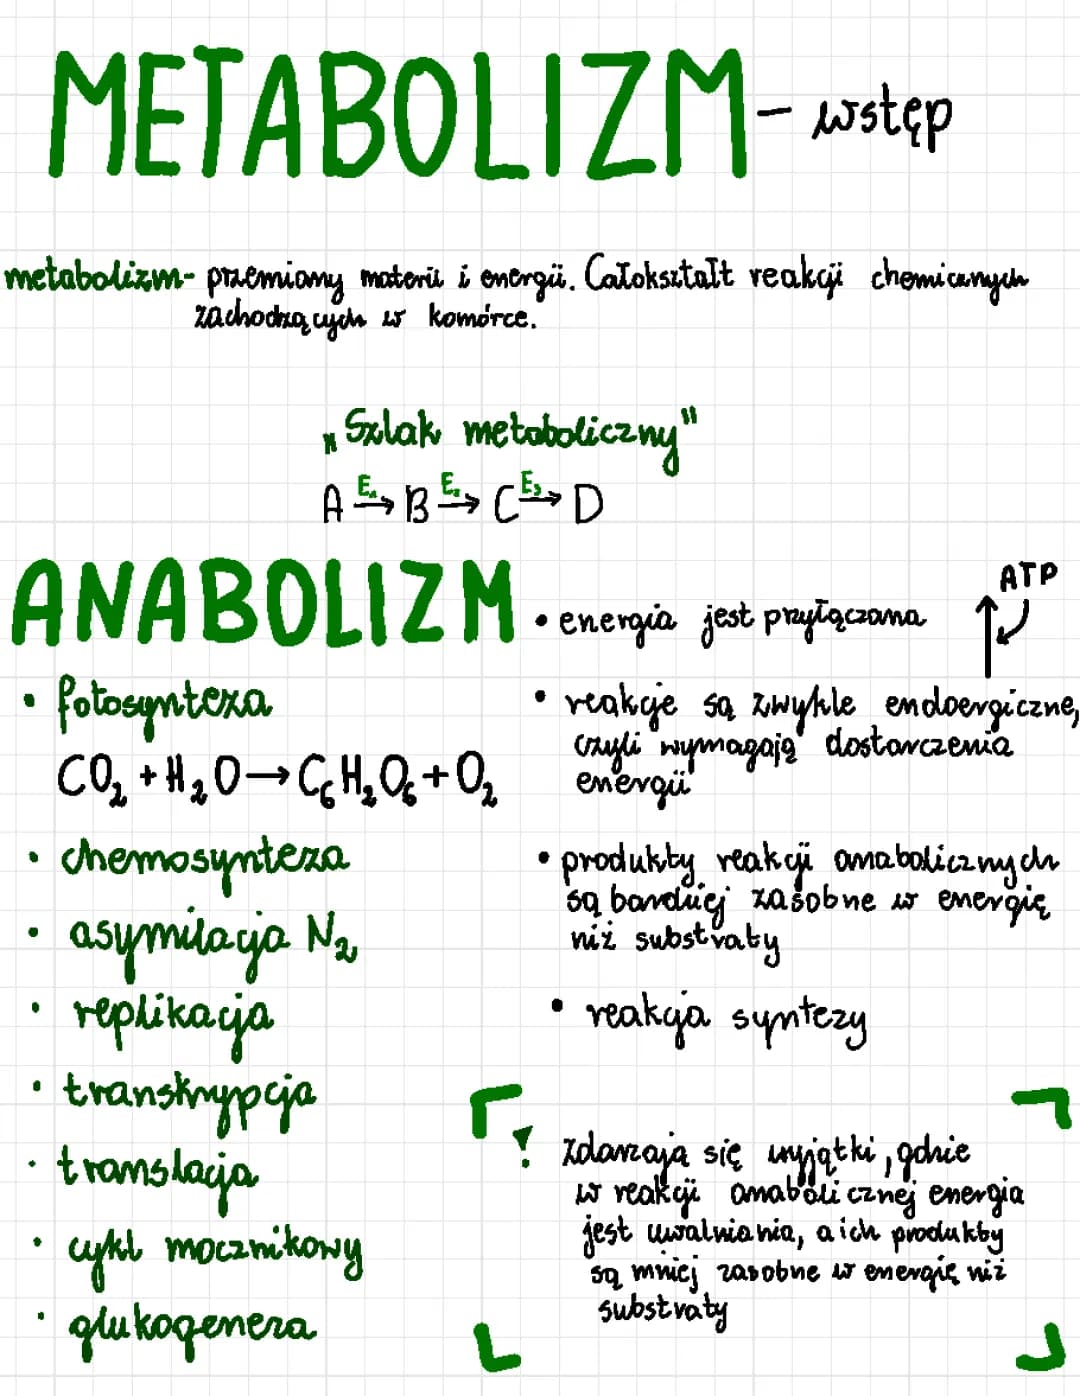 METABOLIZM - wstęp
metabolizm- przemiany materii i energii. Całokształt reakcji chemicznych
zachodzących w komórce.
„Szlak metaboliczny"
A E₁→ B E₂→ C E₃→ D
ANABOLIZM
• fotosynteza
CO₂ + H₂O → C₆H₂O₆ + O₂
• chemosynteza
• asymilacja N₂
• replikacja
• transkrypcja
• translacja
• cykl mocznikowy
• glukogeneza
• energia jest przyłączana
ATP
• reakcje są zwykle endoergiczne,
czyli wymagają dostarczenia
energii
• produkty reakcji anabolicznych
są bardziej zasobne w energię
niż substraty
• reakcja syntezy
! zdarzają się wyjątki, gdzie
w reakcji anabolicznej energia
jest uwalniania, a ich produkty
są mniej zasobne w energię niż
substraty